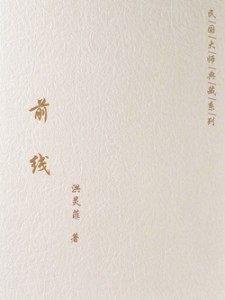 民|国|大|师|典|藏|系|列
前线
洪灵菲 著